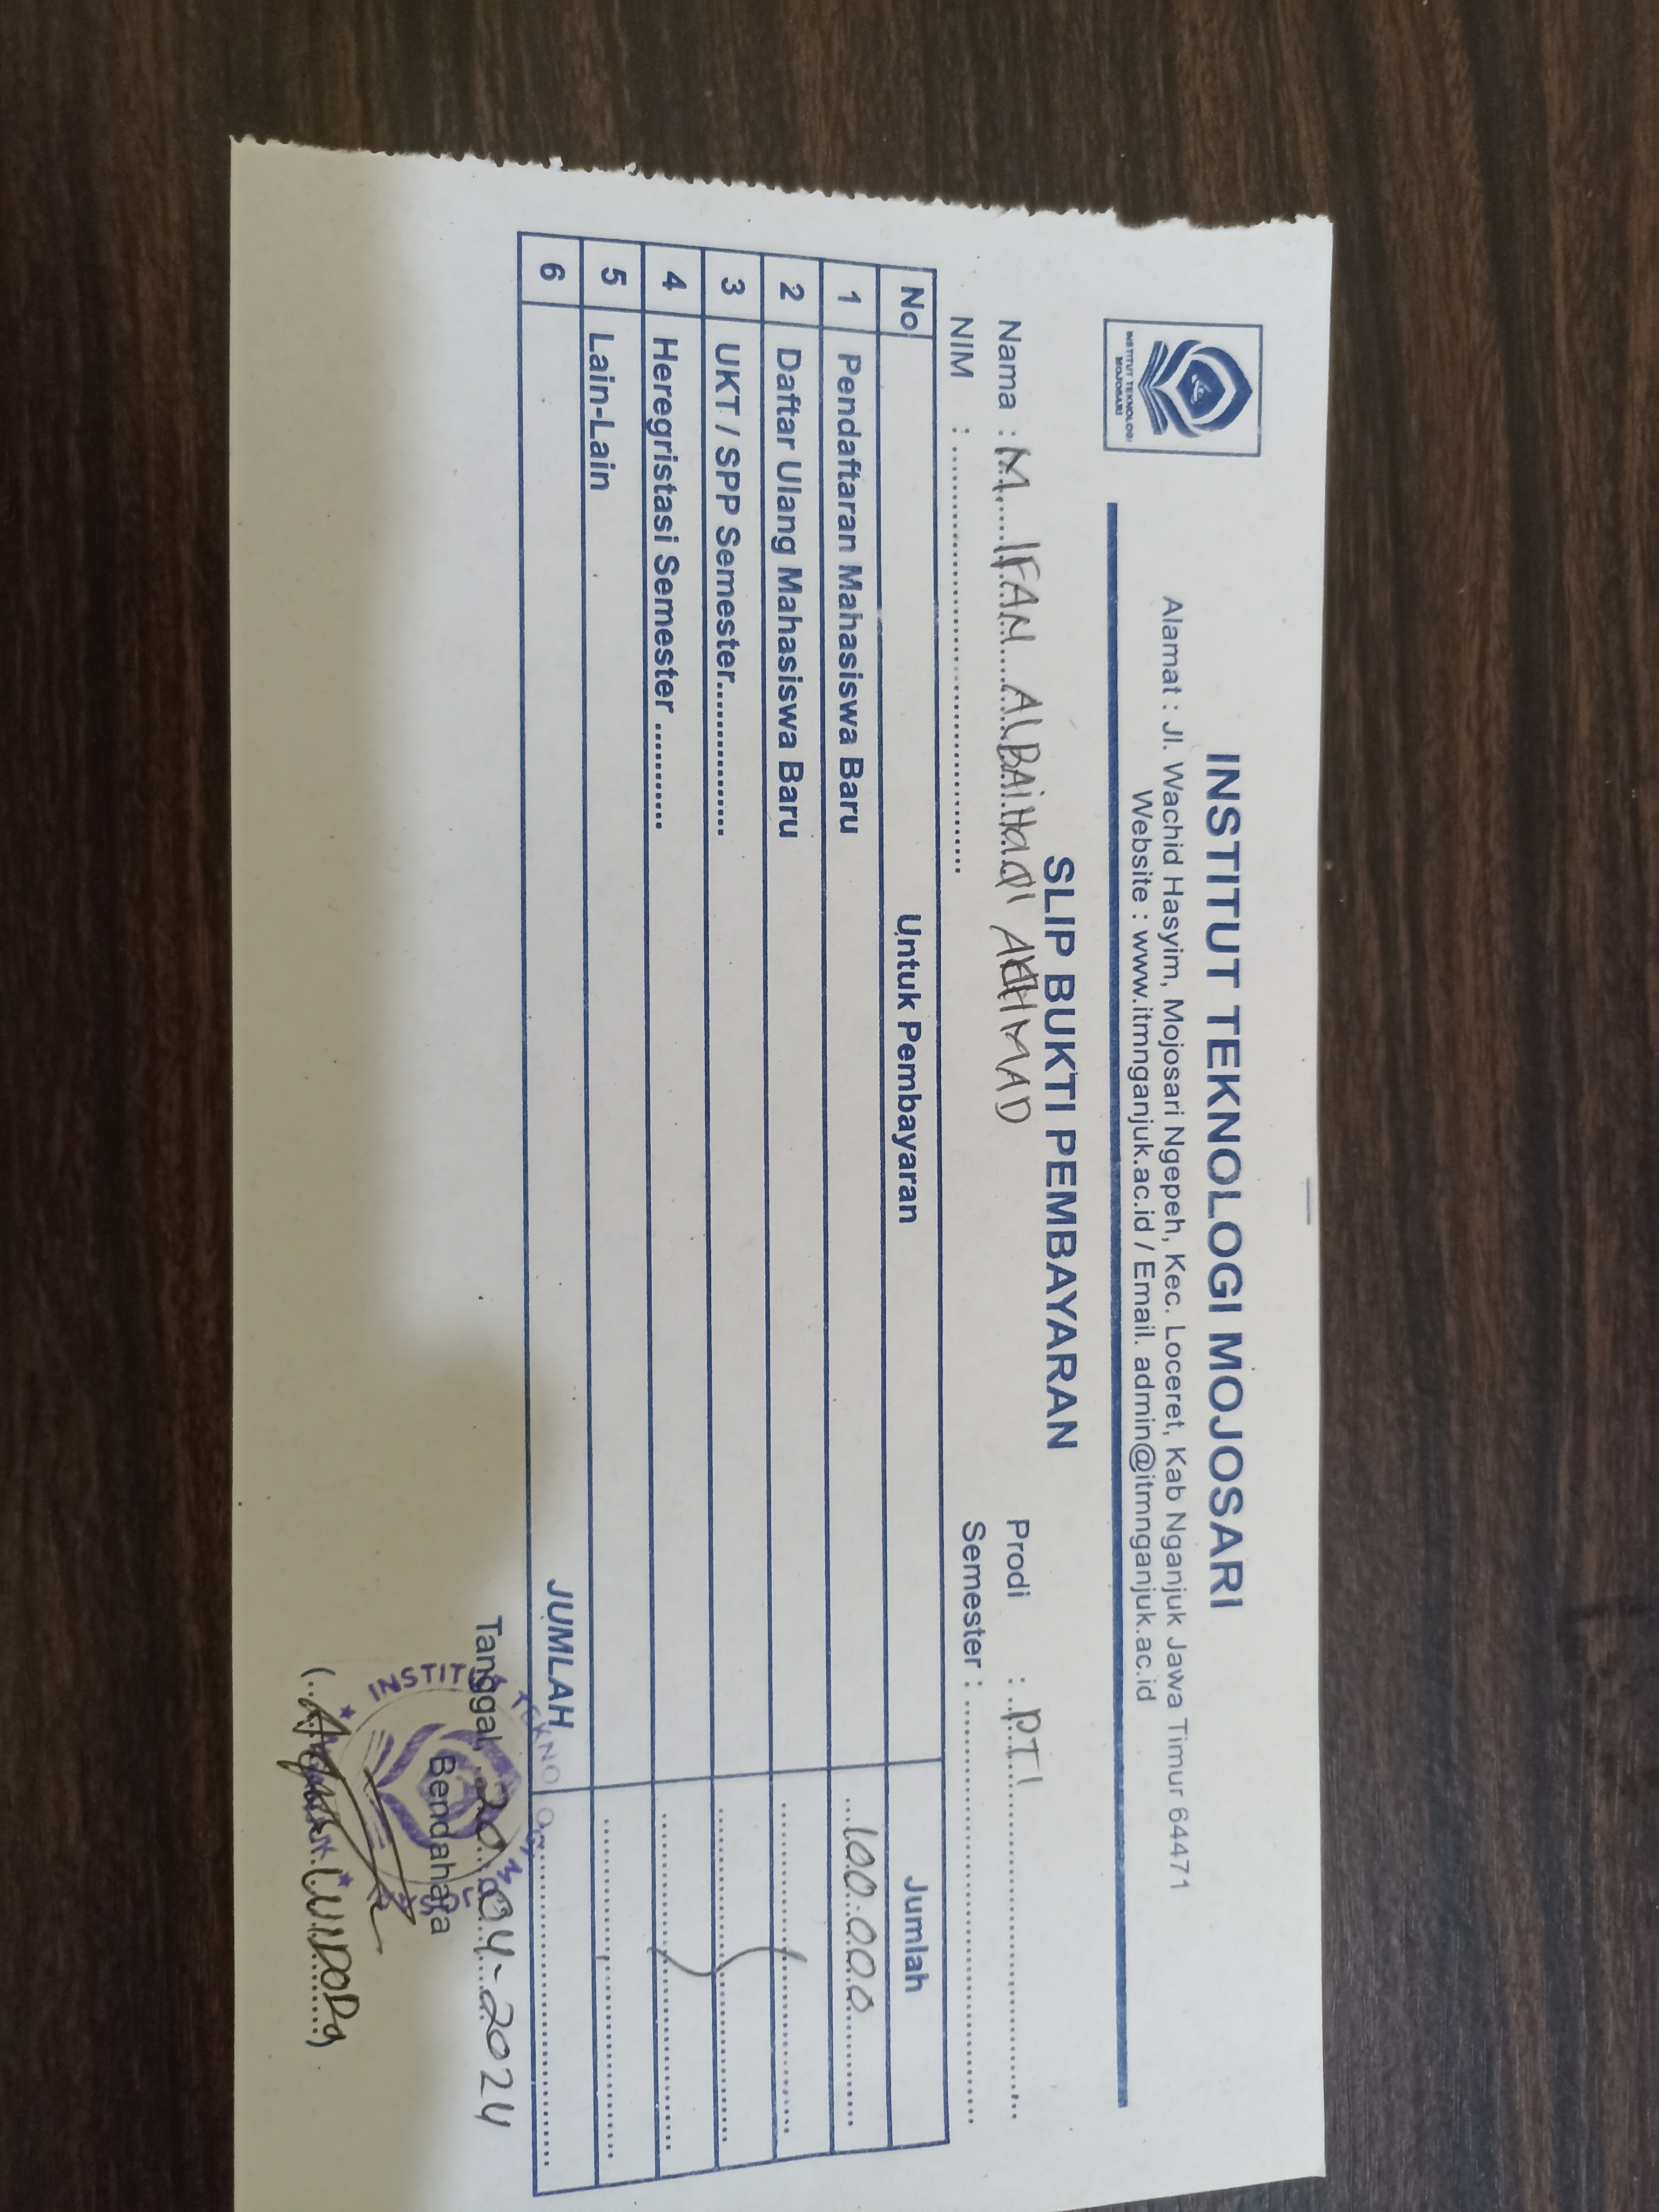 INSTITUT TEKNOLOGI MOJOSARI
INSTITUT TEKNOLOGI
MOJOSARI
Alamat : Jl. Wachid Hasyim, Mojosari Ngepeh, Kec. Loceret, Kab Nganjuk Jawa Timur 64471
Website : www.itmnganjuk.ac.id / Email. admin@itmnganjuk.ac.id
SLIP BUKTI PEMBAYARAN
Nama : M. IFAN ALBAIHAQI AKHMAD Prodi : PTI
NIM : Semester :
No Untuk Pembayaran Jumlah
1 Pendaftaran Mahasiswa Baru 100.000
2 Daftar Ulang Mahasiswa Baru
3 UKT / SPP Semester
4 Heregristasi Semester
5 Lain-Lain
6 JUMLAH
Tanggal, 20-04-2024
Bendahara
WIDODO